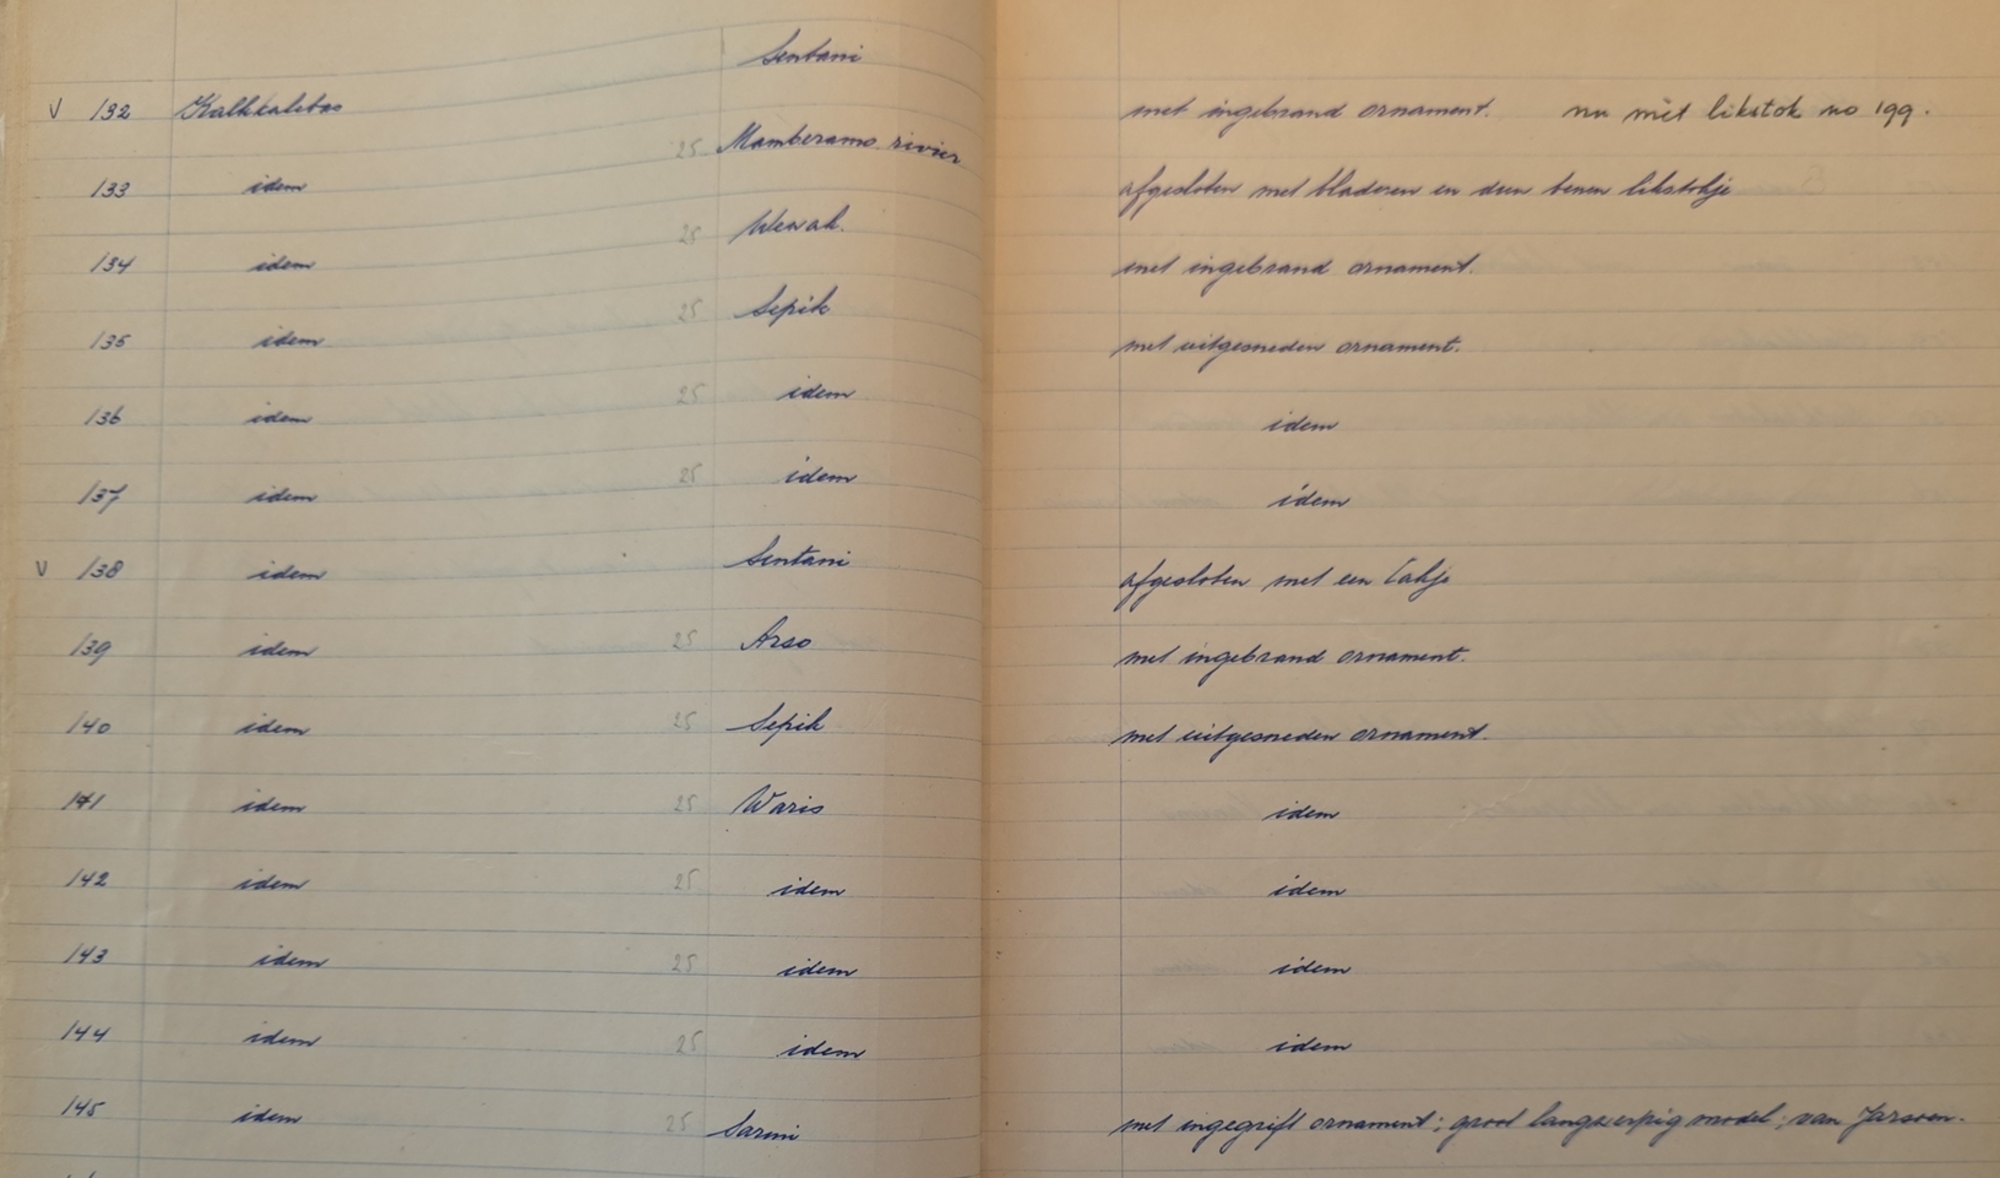 V 132 Kalkkalebas Sentani met ingebrand ornament. nu mèt likstok no 199.
133 idem 25 Mamberamo rivier afgesloten met bladeren en een benen likstokje
134 idem 25 Wewak. met ingebrand ornament.
135 idem 25 Sepik met uitgesneden ornament.
136 idem 25 idem idem
137 idem 25 idem idem
V 138 idem Sentani afgesloten met een
139 idem 25 Arso met ingebrand ornament.
140 idem 25 Sepik met uitgesneden ornament.
141 idem 25 Waris idem
142 idem 25 idem idem
143 idem 25 idem idem
144 idem 25 idem idem
145 idem 25 Sarmi met ingegrift ornament; groot langwerpig model; van